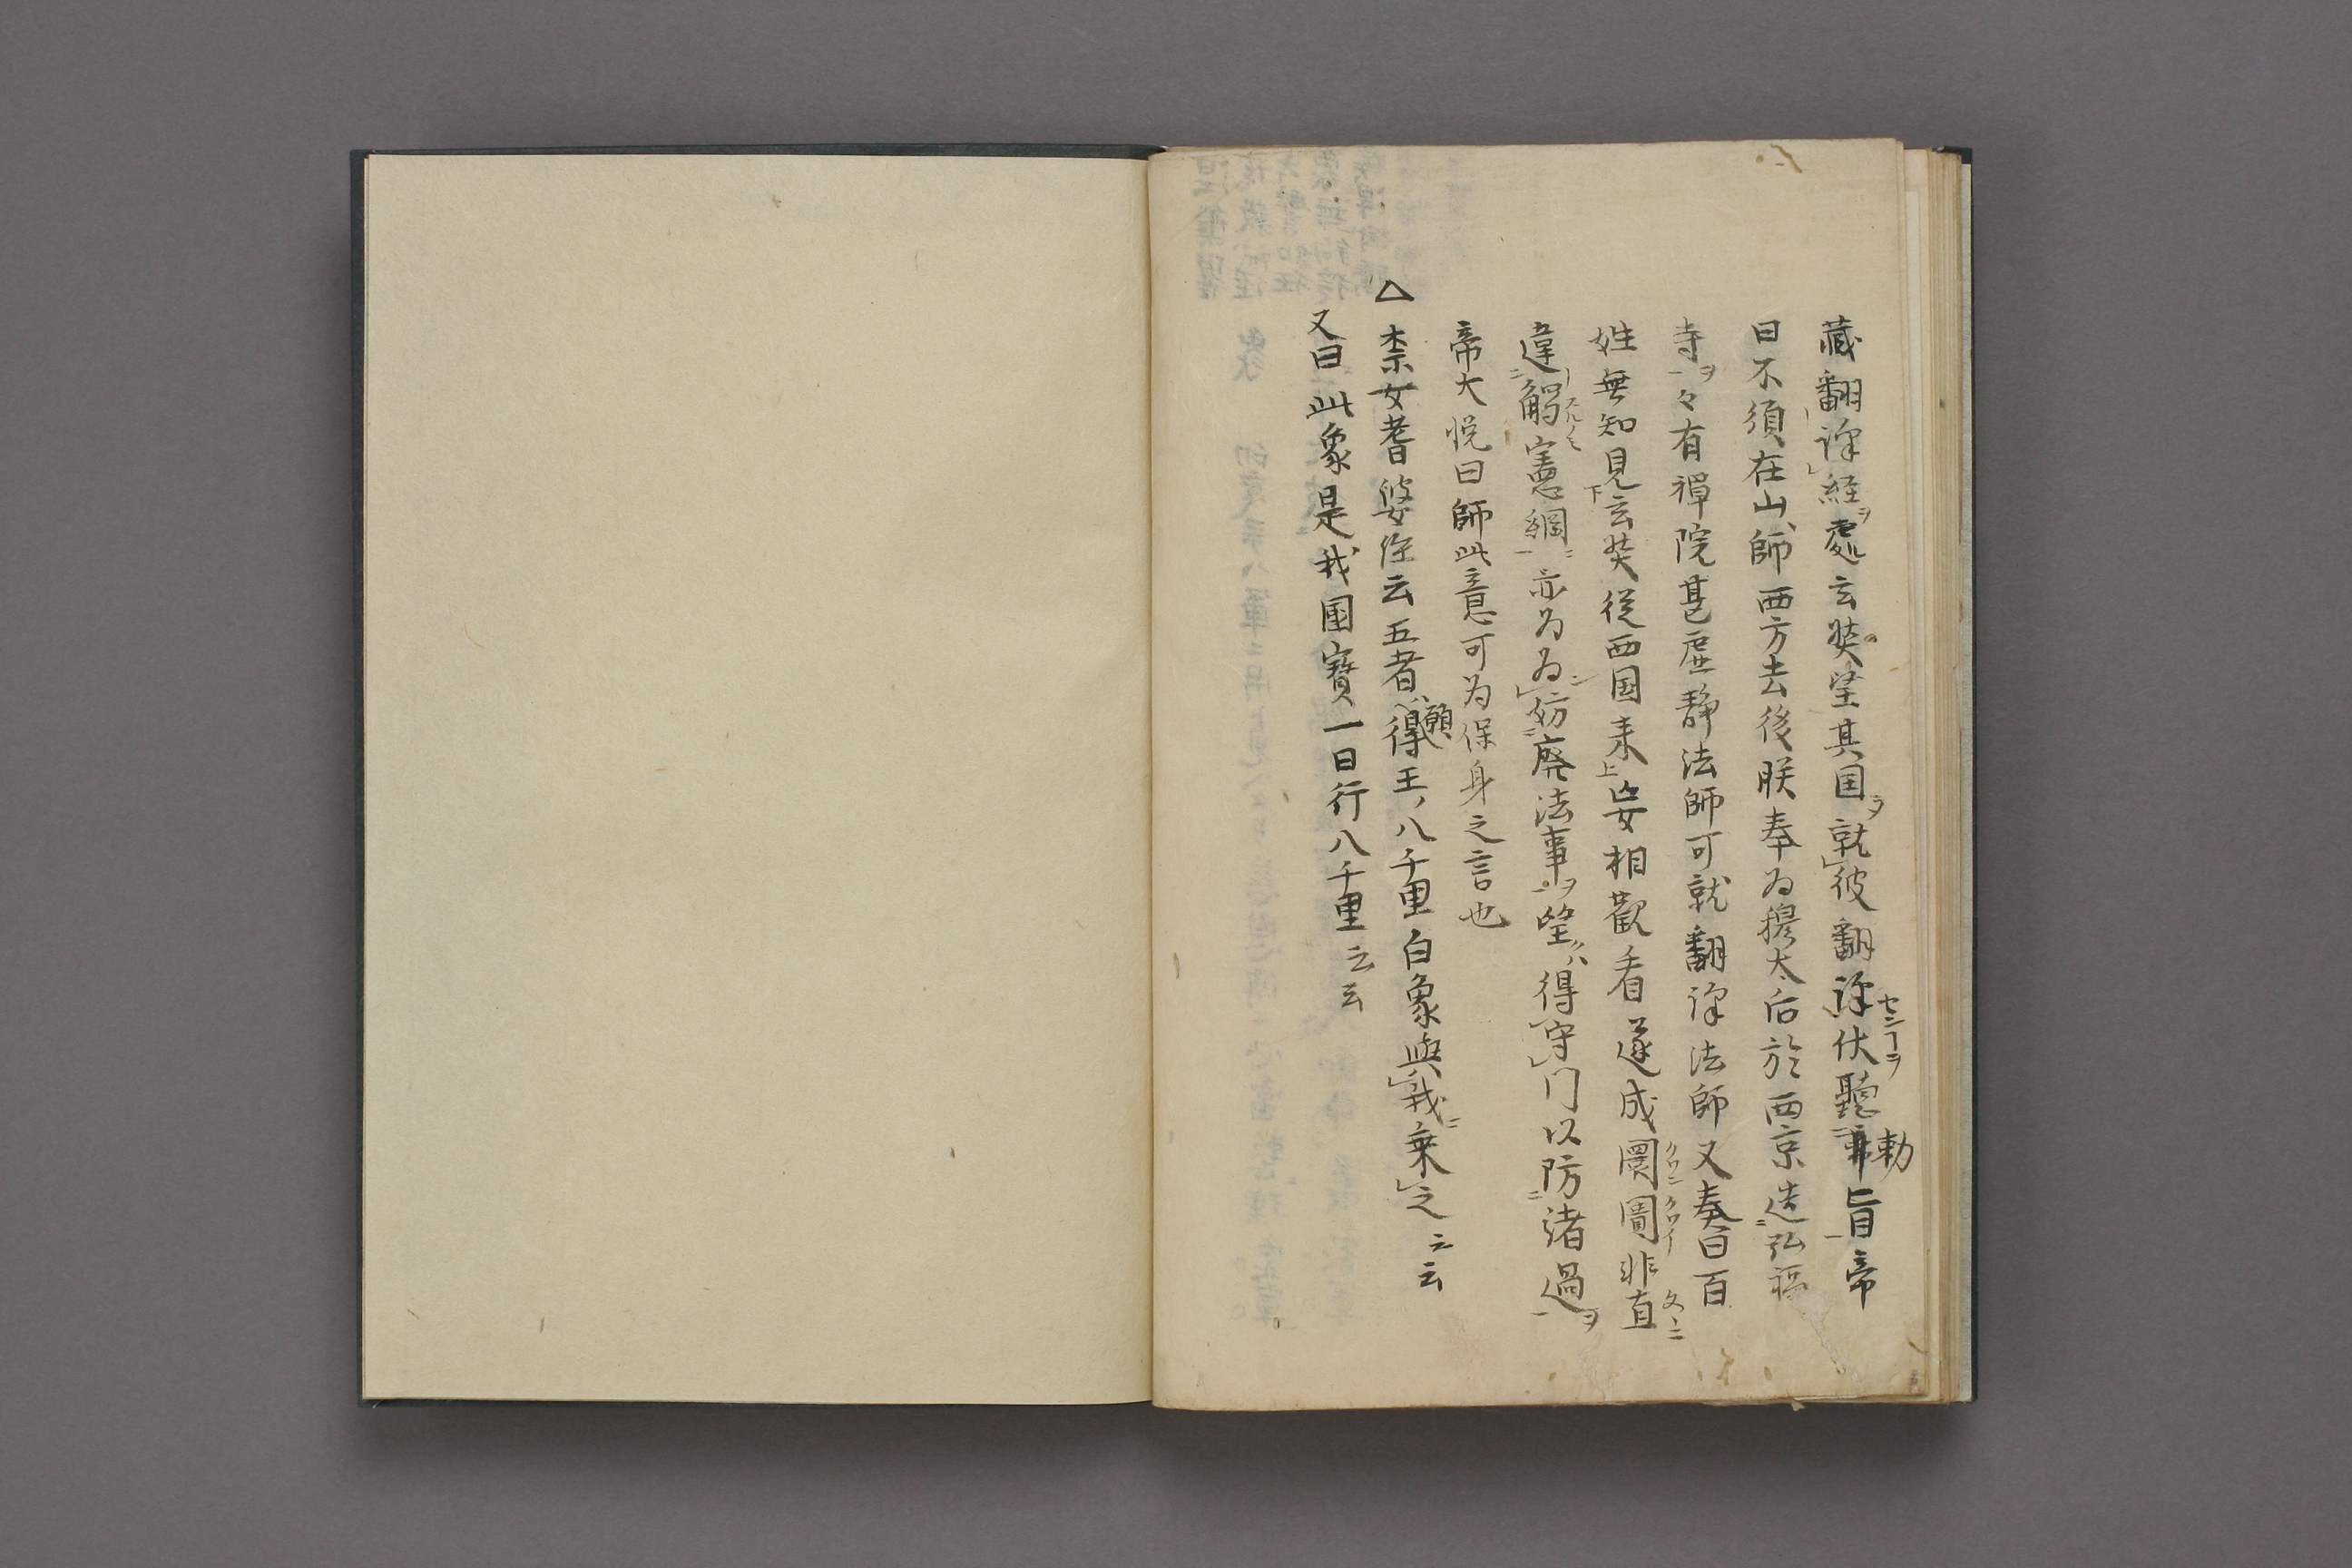 藏翻译経處云奘望其国就彼翻译伏聽勅旨帝
曰不須在山師西方去後朕奉为穆太后於西京造弘福
寺々有禪院甚虚静法師可就翻译法師又奏曰百
姓無知見玄奘従西国来妄相觀看遂成闤闠非直
違觸憲綱亦为为妨廃法事望得守门以防諸過
帝大悦曰師此意可为保身之言也
△ 柰女耆婆経云五者願得王八千里白象與我乗之云云
又曰此象是我国寳一日行八千里云云